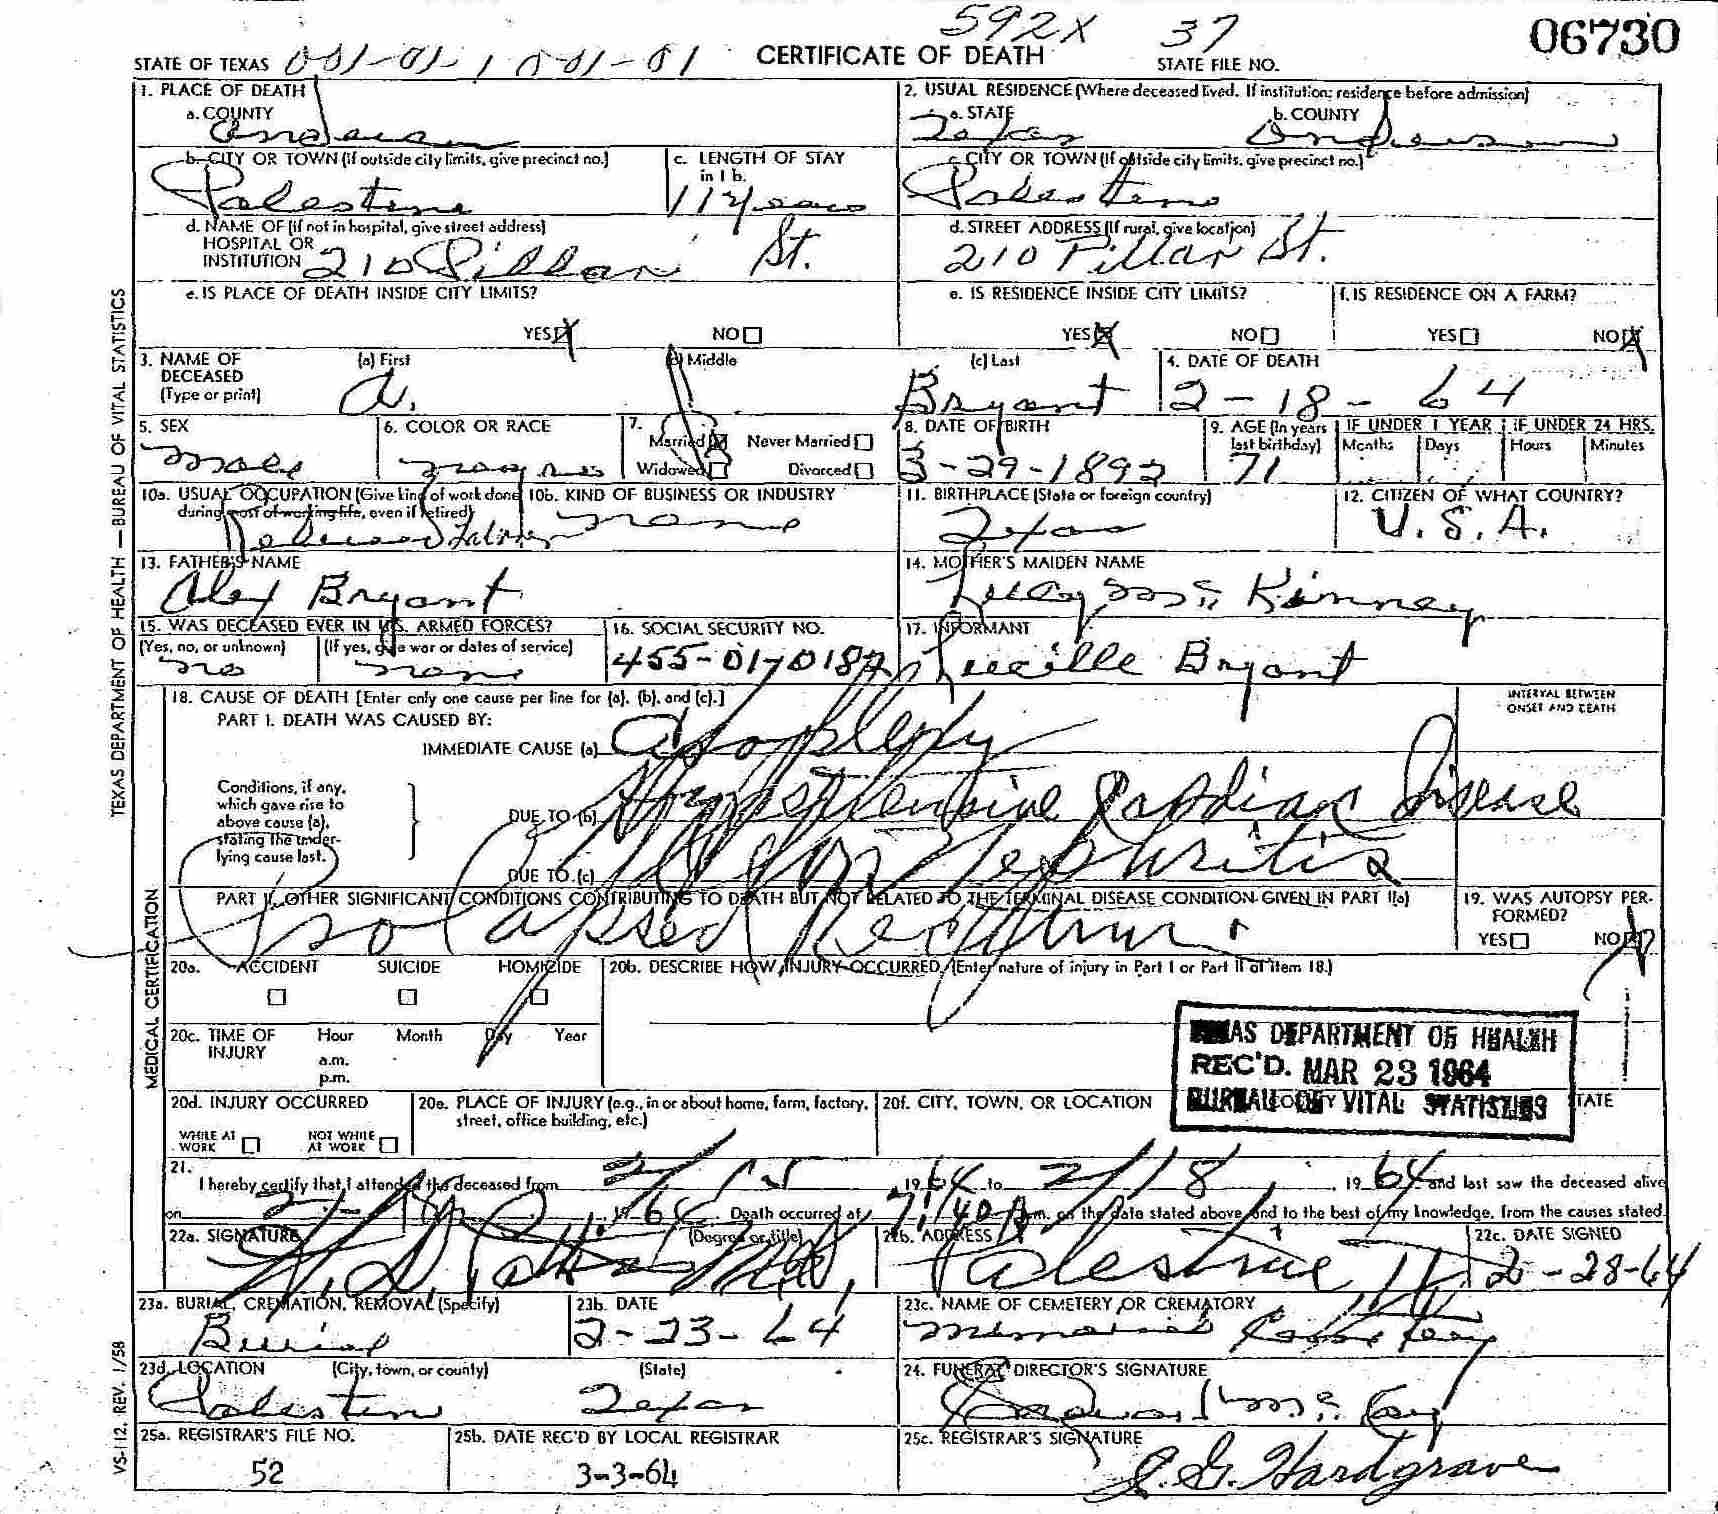 592X 37 06730
STATE OF TEXAS 001-01-1 001-01 CERTIFICATE OF DEATH STATE FILE NO.
1. PLACE OF DEATH 2. USUAL RESIDENCE (Where deceased lived. If institution: residence before admission)
a. COUNTY Anderson a. STATE Texas b. COUNTY Anderson
b. CITY OR TOWN (If outside city limits, give precinct no.) Palestine c. LENGTH OF STAY in 1 b. 11 years c. CITY OR TOWN (If outside city limits, give precinct no.) Palestine
d. NAME OF (If not in hospital, give street address) HOSPITAL OR INSTITUTION 210 Pillar St. d. STREET ADDRESS (If rural, give location) 210 Pillar St.
e. IS PLACE OF DEATH INSIDE CITY LIMITS? e. IS RESIDENCE INSIDE CITY LIMITS? f. IS RESIDENCE ON A FARM?
YES X NO YES X NO YES NO X
3. NAME OF DECEASED (Type or print) (a) First A. (b) Middle (c) Last Bryant 4. DATE OF DEATH 2-18-64
5. SEX Male 6. COLOR OR RACE Negro 7. Married X Never Married Widowed Divorced 8. DATE OF BIRTH 3-29-1892 9. AGE (In years last birthday) 71 IF UNDER 1 YEAR Months Days IF UNDER 24 HRS. Hours Minutes
10a. USUAL OCCUPATION (Give kind of work done during most of working life, even if retired) 10b. KIND OF BUSINESS OR INDUSTRY none 11. BIRTHPLACE (State or foreign country) Texas 12. CITIZEN OF WHAT COUNTRY? U.S.A.
13. FATHER'S NAME Alex Bryant 14. MOTHER'S MAIDEN NAME Lucy McKinney
15. WAS DECEASED EVER IN U.S. ARMED FORCES? (Yes, no, or unknown) no (If yes, give war or dates of service) none 16. SOCIAL SECURITY NO. 455-01-0182 17. INFORMANT Lucille Bryant
18. CAUSE OF DEATH [Enter only one cause per line for (a), (b), and (c).] INTERVAL BETWEEN ONSET AND DEATH
PART I. DEATH WAS CAUSED BY:
IMMEDIATE CAUSE (a) Apoplexy
Conditions, if any, which gave rise to above cause (a), stating the underlying cause last.
DUE TO (b) Hypertensive Cardiac Disease
DUE TO (c) Nephritis
PART II. OTHER SIGNIFICANT CONDITIONS CONTRIBUTING TO DEATH BUT NOT RELATED TO THE TERMINAL DISEASE CONDITION GIVEN IN PART I(a) 19. WAS AUTOPSY PERFORMED?
Prolapsed Rectum YES NO X
20a. ACCIDENT SUICIDE HOMICIDE 20b. DESCRIBE HOW INJURY OCCURRED. (Enter nature of injury in Part I or Part II of item 18.)
20c. TIME OF INJURY Hour a.m. p.m. Month Day Year
TEXAS DEPARTMENT OF HEALTH
REC'D. MAR 23 1964
BUREAU OF VITAL STATISTICS
20d. INJURY OCCURRED WHILE AT WORK NOT WHILE AT WORK 20e. PLACE OF INJURY (e.g., in or about home, farm, factory, street, office building, etc.) 20f. CITY, TOWN, OR LOCATION COUNTY STATE
21. I hereby certify that I attended the deceased from 2/15 1964 to 2/18, 1964 and last saw the deceased alive
on 2-18 1964. Death occurred at 7:40 P.m. on the date stated above, and to the best of my knowledge, from the causes stated.
22a. SIGNATURE (Degree or title) M.D. 22b. ADDRESS Palestine, Tx 22c. DATE SIGNED 2-28-64
23a. BURIAL, CREMATION, REMOVAL (Specify) Burial 23b. DATE 2-23-64 23c. NAME OF CEMETERY OR CREMATORY Memorial Cemetery
23d. LOCATION (City, town, or county) Palestine (State) Texas 24. FUNERAL DIRECTOR'S SIGNATURE
25a. REGISTRAR'S FILE NO. 52 25b. DATE REC'D BY LOCAL REGISTRAR 3-3-64 25c. REGISTRAR'S SIGNATURE J. G. Hardgrave
TEXAS DEPARTMENT OF HEALTH — BUREAU OF VITAL STATISTICS
MEDICAL CERTIFICATION
VS-112, REV. 1/58